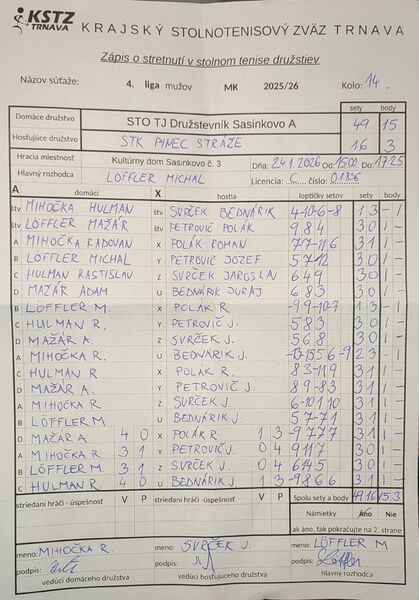 KSTZ TRNAVA KRAJSKÝ STOLNOTENISOVÝ ZVÄZ TRNAVA
Zápis o stretnutí v stolnom tenise družstiev
Názov súťaže: 4. liga mužov MK 2025/26 Kolo: 14.
sety body
Domáce družstvo STO TJ Družstevník Sasinkovo A 49 15
Hosťujúce družstvo STK PINEC STRÁŽE 16 3
Hracia miestnosť Kultúrny dom Sasinkovo č. 3 Dňa: 24.1.2026 Od 15:00 Do 17:25
Hlavný rozhodca LÖFFLER MICHAL Licencia: C číslo:
A domáci X hostia loptičky setov sety body
štv MIHOČKA HULMAN štv SURČEK BEDNÁRIK 4-10-6-8 1 3 - 1
štv LÖFFLER MAŽÁR štv PETROVIČ POLÁK 9 8 4 3 0 1 -
A MIHOČKA RADOVAN X POLÁK ROMAN 7 7 -11 6 3 1 1 -
B LÖFFLER MICHAL Y PETROVIČ JOZEF 5 7 12 3 0 1 -
C HULMAN RASTISLAV Z SURČEK JAROSLAV 6 4 9 3 0 1 -
D MAŽÁR ADAM U BEDNÁRIK JURAJ 6 8 3 3 0 1 -
B LÖFFLER M. X POLÁK R. -9 9 -10 -7 1 3 - 1
C HULMAN R. Y PETROVIČ J. 5 8 3 3 0 1 -
D MAŽÁR A. Z SURČEK J. 5 6 8 3 0 1 -
A MIHOČKA R. U BEDNÁRIK J. 2 3 - 1
C HULMAN R X POLAK R. 8 3 -11 9 3 1 1 -
D MAŽÁR A. Y PETROVIČ J. 8 9 -8 3 3 1 1 -
A MIHOČKA R Z SURČEK J. 6 -10 1 10 3 1 1 -
B LÖFFLER M U BEDNÁRIK J. 5 7 -7 1 3 1 1 -
D MAŽÁR A 4 0 X POLÁK R 1 3 -9 7 7 7 3 1 1 -
A MIHOČKA R. 3 1 Y PETROVIČ J. 0 4 9 11 7 3 0 1 -
B LÖFFLER M 3 1 Z SURČEK J 0 4 6 14 5 3 0 1 -
C HULMAN R 4 0 U BEDNÁRIK J. 1 3 -9 8 6 6 3 1 1 -
striedaní hráči - úspešnosť V P striedaní hráči - úspešnosť V P Spolu sety a body 49 16 15 3
Námietky Áno Nie
ak áno, tak pokračujte na 2. strane
meno: MIHOČKA R. meno: SURČEK J. meno: LÖFFLER M
podpis: podpis: podpis: Löffler
vedúci domáceho družstva vedúci hosťujúceho družstva hlavný rozhodca